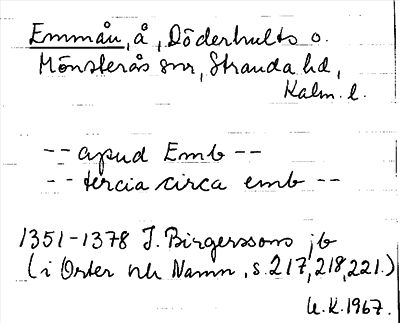 Emmån, å, Döderhults o.
Mönsterås snr, Stranda hd,
Kalm. l.
-- apud Emb --
-- tercia circa emb --
1351-1378 J. Birgerssons jb
(i Orter och Namn, s. 217, 218, 221.)
U.K. 1967.